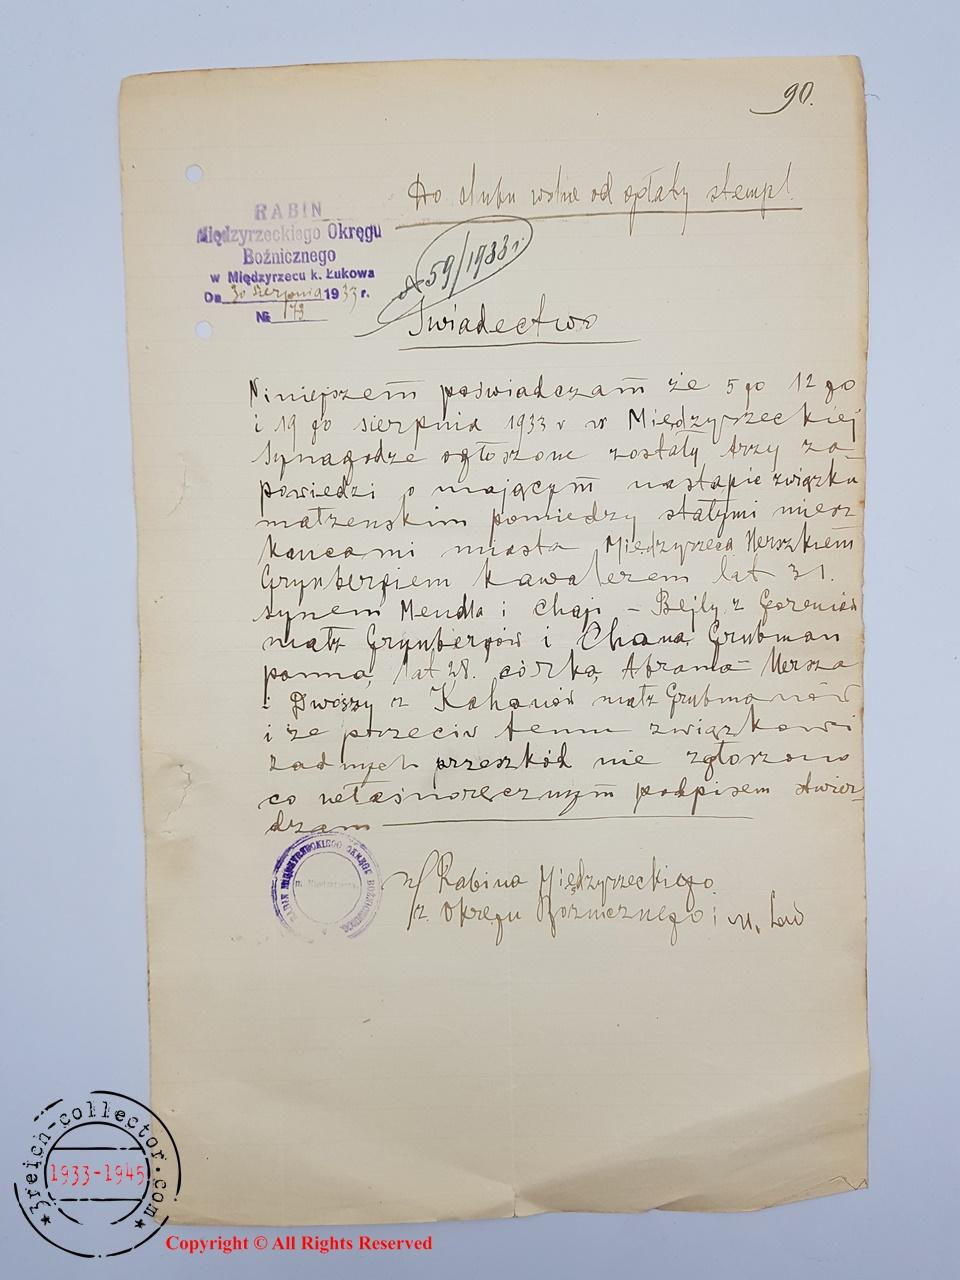 90.
Do slubu wolne od opłaty stempl.
RABIN
Międzyrzeckiego Okręgu
Bożnicznego
w Międzyrzecu k. Łukowa
Dn. 30 sierpnia 1933 r.
№ 173
59/1933 r.
Swiadectwo
Niniejszem poświadczam że 5 go 12 go
i 19 go sierpnia 1933 r w Międzyrzeckiej
Synagodze ogłoszone zostały trzy za
powiedzi o mającym nastąpic związku
małżenskim pomiędzy stałymi miesz
kancami miasta Międzyrzeca Herszkiem
Grynbergiem kawalerem lat 31.
synem Mendla i Chaji - Bejly z
małż Grynbergów i Chaną Grubman
panną lat 28. córką Abrama - Hersza
i Dwojry z Kahanów małż Grubmanów
i że przeciw temu związkowi
żadnych przeszkód nie zgłoszono
co własnoręcznym podpisem stwier-
dzam
RABIN MIĘDZYRZECKIEGO OKRĘGU BOŻNICZNEGO
Rabina Międzyrzeckiego
Okręgu Bożnicznego M.
3reich-collector.com
1933-1945
Copyright © All Rights Reserved